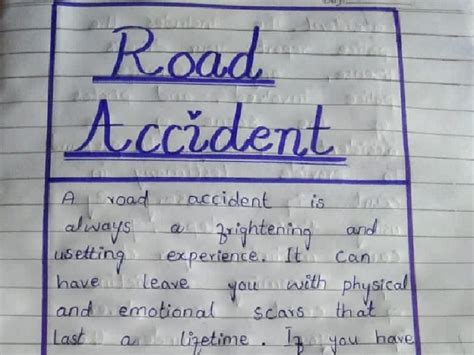 Road
Accident
A road accident is
always a frightening and
usetting experience. It can
have leave you with physical
and emotional scars that
last a lifetime. If you have